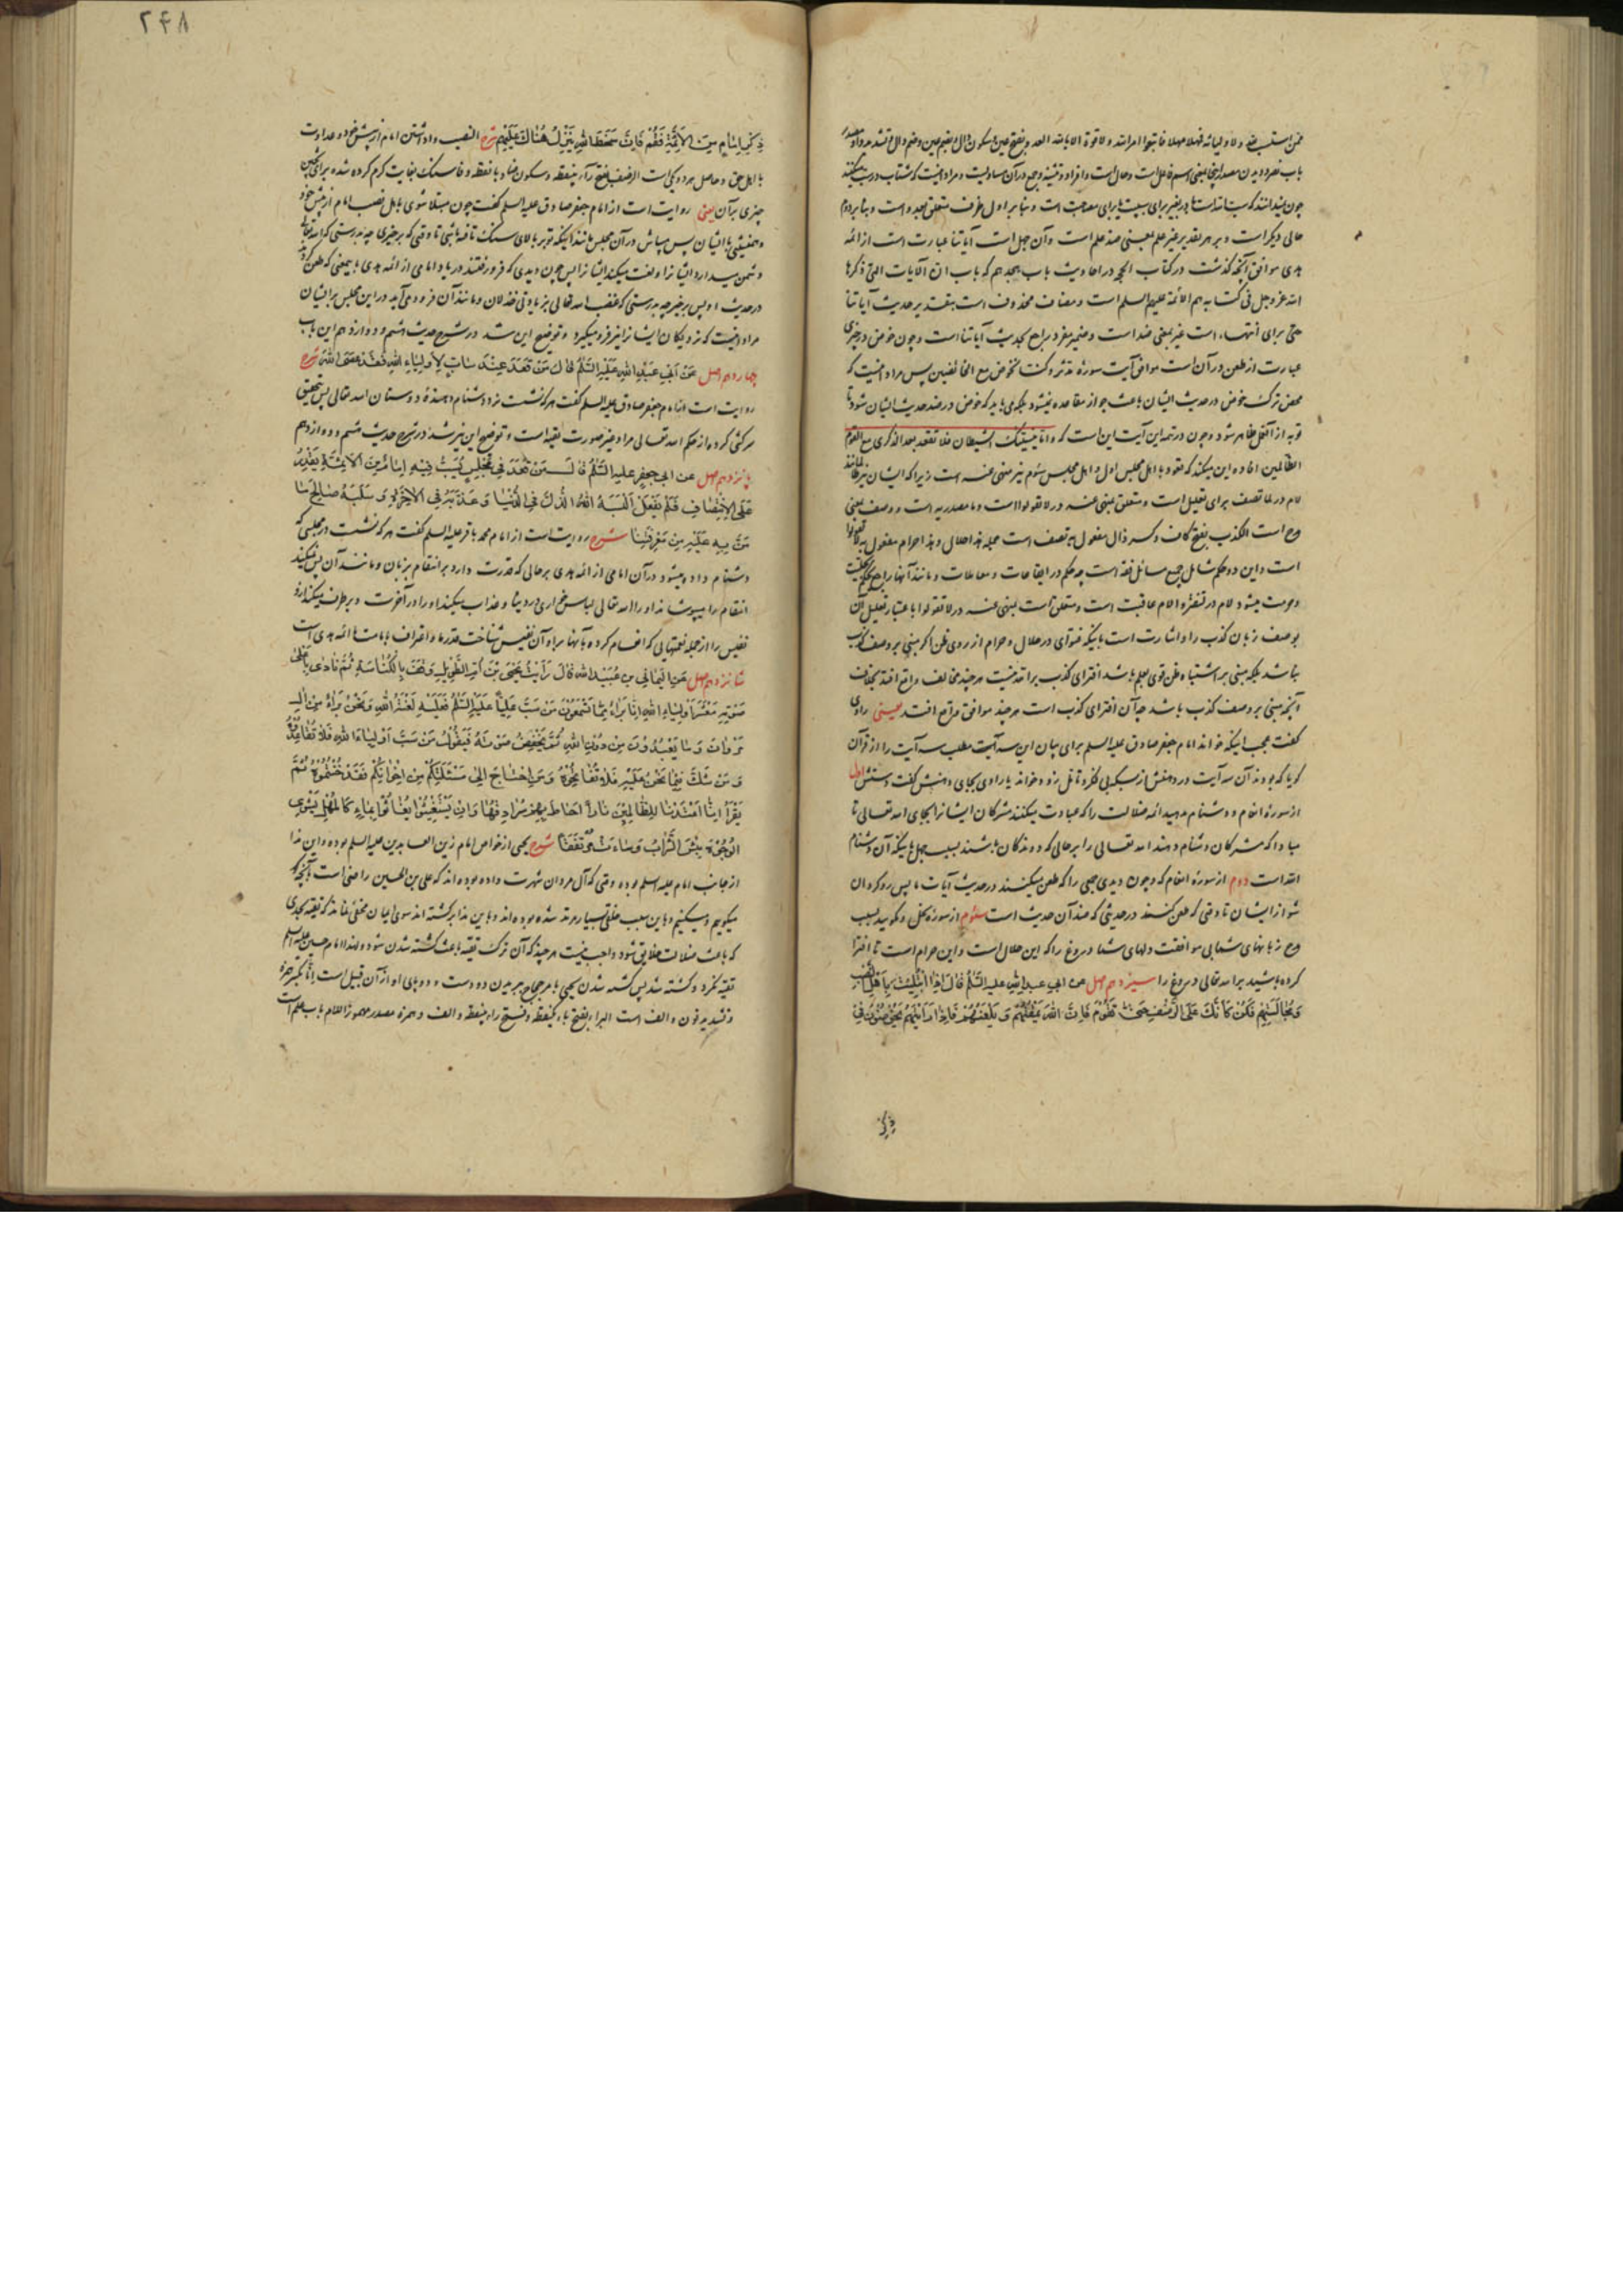 باب نصر و دیدن مصدر اینجا بمعنی اسم فاعل است و حال است و افراد و تثنیه و جمع در آن مساویست و مراد اینست که شتاب در سب میکنند
حالی دیگر است و بر هر تقدیر غیر علم بمعنی ضد علم است و آن جهل است آیاتنا عبارت است از ائمه
هدی موافق آنچه گذشت در کتاب الحجه در احادیث باب هجدهم که باب ان الآیات التی ذکرها
الله عز و جل فی کتابه هم الائمة علیهم السلم است و مضاف محذوف است بتقدیر حدیث آیاتنا
حتی برای انتهاء است غیر بمعنی ضد است و ضمیر مفرد راجع بحدیث آیاتنا است و چون خوض در چیزی
عبارت از طعن در آن است موافق آیت سورهٔ مدثر و کنا نخوض مع الخائضین پس مراد اینست که
محض ترک خوض در حدیث ایشان باعث جواز مقاعده نمیشود بلکه می باید که خوض در ضد حدیث ایشان شود تا
توبه از آنفعل ظاهر شود و چون در تتمه این آیت این است که و اما ینسینک الشیطان فلا تقعد بعد الذکری مع القوم
الظالمین افاده این میکند که قعود با اهل مجلس اول و اهل مجلس سوم نیز منهی عنه است زیرا که ایشان نیز ظالمند
لام در لما تصف برای تعلیل است و متعلق بمنهی عنه در لا تقولوا است و ما مصدریه است و وصف بمعنی
مدح است الکذب بفتح کاف و کسر ذال مفعول به تصف است جمله هذا حلال و هذا حرام مفعول به لا تقولوا
است و این دو حکم شامل جمیع مسائل فقه است چه حکم در ایقاعات و معاملات و مانند آنها راجع بحکم بحلیت
و حرمت میشود لام در لتفتروا لام عاقبت است و متعلق است بمنهی عنه در لا تقولوا باعتبار تعلیل آن
بوصف زبان کذب را و اشارت است باینکه فتوای در حلال و حرام از روی ظن اگر مبنی بر وصف کذب
نباشد بلکه مبنی بر اشتباه ظن قوی بعلم باشد افترای کذب بر الله نیست هر چند مخالف واقع افتد بخلاف
آنچه مبنی بر وصف کذب باشد چه آن افترای کذب است هر چند موافق واقع افتد یعنی راوی
گفت عجب اینکه خواند امام جعفر صادق علیه السلم برای بیان این سه آیت مطلب سه آیت را از قرآن
گویا که بودند آن سه آیت در دهنش از بسکه بی فکر و تأمل زود خواند یا راوی بجای دهنش گفت دستش اول
از سورهٔ انعام و دشنام مدهید ائمه ضلالت را که عبادت میکنند مشرکان ایشانرا بجای الله تعالی تا
مبادا که مشرکان دشنام دهند الله تعالی را بر حالی که دوندگان باشند بسبب جهل باینکه آن دشنام
الله است دوم از سورهٔ انعام که و چون دیدی جمعی را که طعن میکنند در حدیث آیات ما پس روگردان
شو از ایشان تا وقتی که طعن کنند در حدیثی که ضد آن حدیث است سوم از سورهٔ نحل و مگویید بسبب
مدح زبانهای شما بی موافقت دلهای شما دروغ را که این حلال است و این حرام است تا افترا
کرده باشید بر الله تعالی دروغ را سیزدهم اصل عن ابی عبد الله علیه السلم قال اذا ابتلیت باهل النصب
و مجالستهم فکن کانک علی الرضف حتی تقوم فان الله یمقتهم و یلعنهم فاذا رایتهم یخوضون فی
ذکر
۲۴۸
ذکر امام من الائمة فقم فان سخط الله ینزل هناک علیهم شرح النصب واداشتن امام از پیش خود و عداوت
با اهل حق و حاصل هر دو یکی است الرضف بفتح راء بینقطه و سکون ضاد با نقطه و فا سنگ بغایت گرم کرده شده برای پختن
چیزی بر آن یعنی روایت است از امام جعفر صادق علیه السلم گفت چون مبتلا شوی باهل نصب امام از پیش خود
و همنشینی با ایشان پس میباش در آن مجلس مانند اینکه تو بر بالای سنگ تافته باشی تا وقتی که برخیزی چه بدرستی که الله تعالی
دشمن میدارد ایشانرا و لعنت میکند ایشانرا پس چون دیدی که فرو رفتند در یاد امامی از ائمه هدی باینمعنی که طعن کردند
در حدیث او پس برخیز چه بدرستی که غضب الله تعالی بزیادتی خذلان و مانند آن فرود می آید در این مجلس بر ایشان
مراد اینست که نزدیکان ایشانرا نیز فرو میگیرد و توضیح این شد در شرح حدیث هشتم و دوازدهم این باب
چهاردهم اصل عن ابی عبد الله علیه السلم قال من قعد عند ساب لاولیاء الله فقد عصی الله شرح
روایت است از امام جعفر صادق علیه السلم گفت هر که نشست نزد دشنام دهندهٔ دوستان الله تعالی پس بتحقیق
سرکشی کرده از حکم الله تعالی مراد غیر صورت تقیه است و توضیح این نیز شد در شرح حدیث هشتم و دوازدهم
پانزدهم اصل عن ابی جعفر علیه السلم قال من قعد فی مجلس یسب فیه امام من الائمة یقدر
علی الانتصاف فلم یفعل البسه الله الذل فی الدنیا و عذبه فی الاخرة و سلبه صالح ما
من به علیه من معرفتنا شرح روایت است از امام محمد باقر علیه السلم گفت هر که نشست در مجلسی که
دشنام داده میشود در آن امامی از ائمه هدی بر حالی که قدرت دارد بر انتقام بزبان و مانند آن پس نمیکند
انتقام را میپوشاند او را الله تعالی لباس خواری در دنیا و عذاب میکند او را در آخرت و بر طرف میکند از او
نفیس را از جمله نعمتهایی که انعام کرده بآنها بر او آن نفیس شناخت قدر ما و اعتراف بامامت ما ائمه هدی است
شانزدهم اصل عن الیمانی بن عبید الله قال رایت یحیی بن ام الطویل وقف بالکناسة ثم نادی باعلی
صوته معشر اولیاء الله انا براء مما تسمعون من سب علیا علیه السلم فعلیه لعنة الله و نحن براء من آل
مروان و ما یعبدون من دون الله ثم یخفض صوته فیقول من سب اولیاء الله فلا تقاعدوه
و من شک فیما نحن علیه فلا تفاتحوه و من احتاج الی مسئلتکم من اخوانکم فقد خنتموه ثم
یقرا انا اعتدنا للظالمین نارا احاط بهم سرادقها و ان یستغیثوا یغاثوا بماء کالمهل یشوی
الوجوه بئس الشراب و ساءت مرتفقا شرح یحیی از خواص امام زین العابدین علیه السلم بوده و این ندا
از جانب امام علیه السلم بوده وقتی که آل مروان شهرت داده بوده اند که علی بن الحسین راضی است بآنچه
میگوییم و میکنیم و باین سبب خلقی بسیار مرتد شده بوده اند و باین ندا برگشته اند سوی ایمان مخفی نماند که تقیه بحدی
که باعث ضلالت خلایق شود واجب نیست هر چند که آن ترک تقیه باعث کشته شدن شود و لهذا امام حسین علیه السلم
تقیه نکرد و کشته شد پس کشته شدن یحیی بامر حجاج ببریدن دو دست و دو پای او از آن قبیل است انا بکسر همزه
و تشدید نون و الف است البراء بفتح باء یکنقطه و فتح راء بینقطه و الف و همزه مصدر مهموز اللام باب علم است